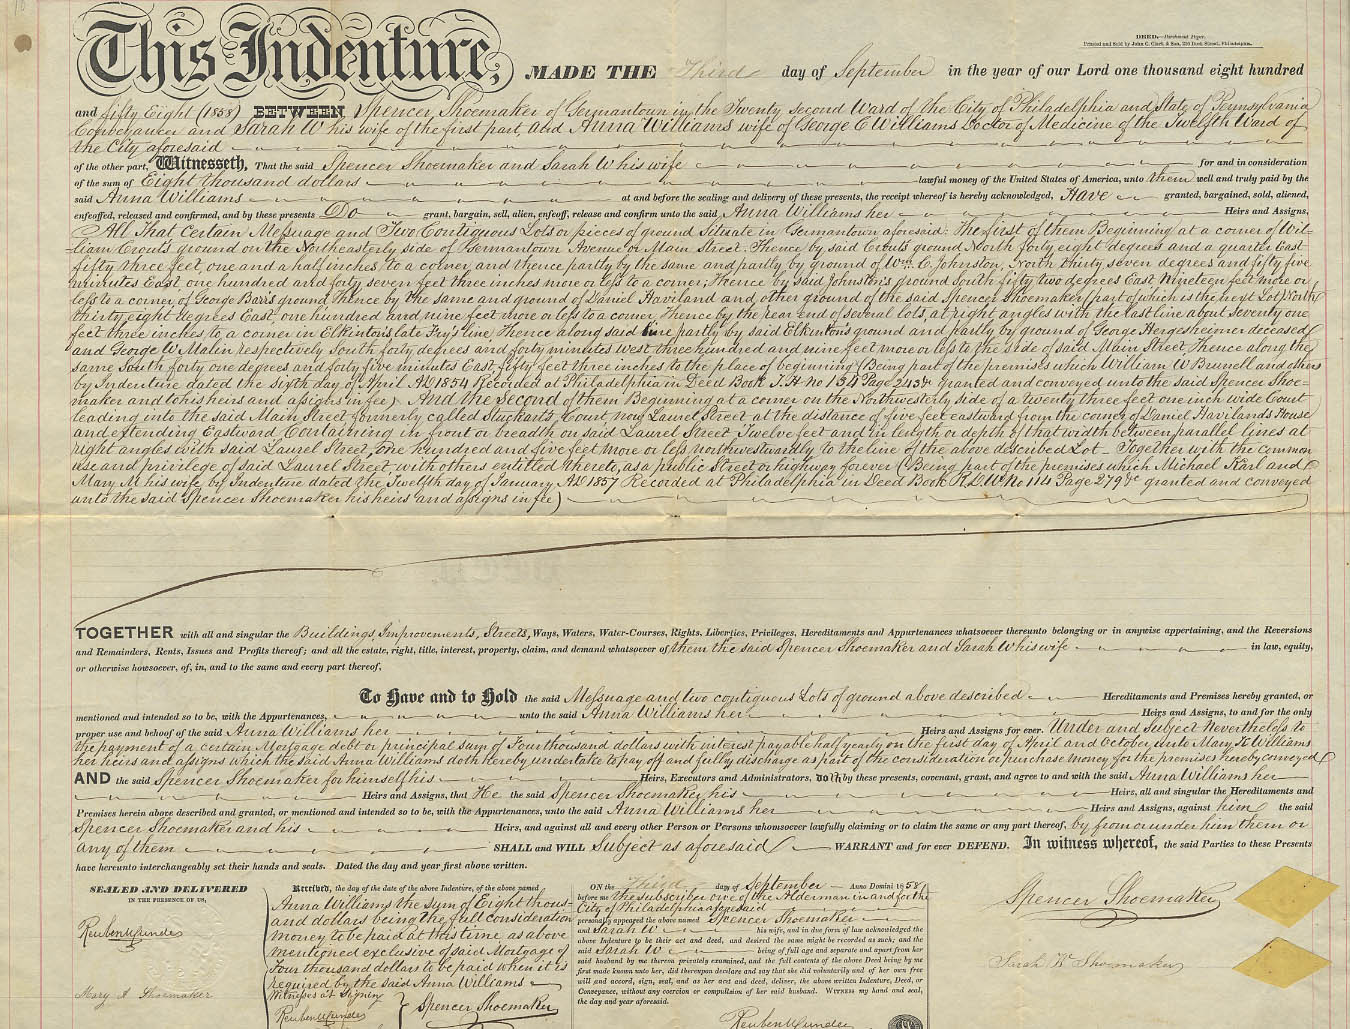 DEED.—Parchment Paper.
Printed and Sold by John C. Clark & Son, 230 Dock Street, Philadelphia.
This Indenture, MADE THE Third day of September in the year of our Lord one thousand eight hundred
and fifty Eight (1858) BETWEEN Spencer Shoemaker of Germantown in the Twenty second Ward of the City of Philadelphia and State of Pennsylvania
Conveyancer and Sarah W his wife of the first part, And Anna Williams wife of George C Williams Doctor of Medicine of the Twelfth Ward of
the City aforesaid
of the other part, Witnesseth, That the said Spencer Shoemaker and Sarah W his wife for and in consideration
of the sum of Eight thousand dollars lawful money of the United States of America, unto them well and truly paid by the
said Anna Williams at and before the sealing and delivery of these presents, the receipt whereof is hereby acknowledged, Have granted, bargained, sold, aliened,
enfeoffed, released and confirmed, and by these presents Do grant, bargain, sell, alien, enfeoff, release and confirm unto the said Anna Williams her Heirs and Assigns,
All That Certain Messuage and Two Contiguous Lots or pieces of ground Situate in Germantown aforesaid: The first of them Beginning at a corner of Wil-
liam Crout's ground on the Northeasterly side of Germantown Avenue or Main Street. Thence by said Crout's ground North forty eight degrees and a quarter East
fifty three feet, one and a half inches, to a corner, and thence partly by the same and partly by ground of Wm. C. Johnston, North thirty seven degrees and fifty five
minutes East, one hundred and forty seven feet three inches more or less to a corner; Thence by said Johnston's ground South fifty two degrees East Nineteen feet more or
less to a corner of George Bar's ground thence by the same and ground of Daniel Haviland and other ground of the said Spencer Shoemaker (part of which is the next Lot) North
thirty eight degrees East, one hundred and nine feet more or less to a corner, Thence by the rear end of several lots, at right angles with the last line about seventy one
feet three inches to a corner in Elkinton's late Fry's line, Thence along said line partly by said Elkinton's ground and partly by ground of George Hergesheimer deceased
and George W Malin respectively South forty degrees and forty minutes West three hundred and nine feet more or less to the side of said Main Street, Thence along the
same South forty one degrees and forty five minutes East fifty feet three inches to the place of beginning (Being part of the premises which William W Brunell and others
by Indenture dated the sixth day of April AD 1854 Recorded at Philadelphia in Deed Book T. H No 134 Page 243 &c granted and conveyed unto the said Spencer Shoe-
maker and to his heirs and assigns in fee) And the Second of them Beginning at a corner on the Northwesterly side of a twenty three feet one inch wide Court
leading into the said Main Street formerly called Stuckart's Court now Laurel Street at the distance of five feet eastward from the corner of Daniel Haviland's House
and extending Eastward Containing in front or breadth on said Laurel Street Twelve feet and in length or depth of that width between parallel lines at
right angles with said Laurel Street, one hundred and five feet more or less northwestwardly to the line of the above described Lot – Together with the common
use and privilege of said Laurel Street with others entitled thereto, as a public Street or highway forever (Being part of the premises which Michael Karl and
Mary M his wife by Indenture dated the Twelfth day of January AD 1857 Recorded at Philadelphia in Deed Book R. D. W. No 114 Page 279 &c granted and conveyed
unto the said Spencer Shoemaker his heirs and assigns in fee)
TOGETHER with all and singular the Buildings, Improvements, Streets, Ways, Waters, Water-Courses, Rights, Liberties, Privileges, Hereditaments and Appurtenances whatsoever thereunto belonging or in anywise appertaining, and the Reversions
and Remainders, Rents, Issues and Profits thereof; and all the estate, right, title, interest, property, claim, and demand whatsoever of them the said Spencer Shoemaker and Sarah W his wife in law, equity,
or otherwise howsoever, of, in, and to the same and every part thereof,
To Have and to Hold the said Messuage and two contiguous Lots of ground above described Hereditaments and Premises hereby granted, or
mentioned and intended so to be, with the Appurtenances, unto the said Anna Williams her Heirs and Assigns, to and for the only
proper use and behoof of the said Anna Williams her Heirs and Assigns for ever. Under and Subject Nevertheless to
the payment of a certain Mortgage debt or principal sum of Four thousand dollars with interest payable half yearly on the first day of April and October, unto Mary Williams
her heirs and assigns which the said Anna Williams doth hereby undertake to pay off and fully discharge as part of the consideration or purchase money for the premises hereby conveyed
AND the said Spencer Shoemaker for himself his Heirs, Executors and Administrators, doth by these presents, covenant, grant, and agree to and with the said Anna Williams her
Heirs and Assigns, that He the said Spencer Shoemaker, his Heirs, all and singular the Hereditaments and
Premises herein above described and granted, or mentioned and intended so to be, with the Appurtenances, unto the said Anna Williams her Heirs and Assigns, against him the said
Spencer Shoemaker and his Heirs, and against all and every other Person or Persons whomsoever lawfully claiming or to claim the same or any part thereof, by from or under him them or
any of them SHALL and WILL Subject as aforesaid WARRANT and for ever DEFEND. In witness whereof, the said Parties to these Presents
have hereunto interchangeably set their hands and seals. Dated the day and year first above written.
SEALED AND DELIVERED
IN THE PRESENCE OF US,
Mary A Shoemaker
Received, the day of the date of the above Indenture, of the above named
Anna Williams the sum of Eight thous-
and dollars being the full consideration
money to be paid at this time as above
mentioned exclusive of said Mortgage of
Four thousand dollars to be paid when it is
required by the said Anna Williams
Witnesses at Signing
Spencer Shoemaker
ON the Third day of September Anno Domini 1858,
before me the subscriber one of the Aldermen in and for the
City of Philadelphia aforesaid
personally appeared the above named Spencer Shoemaker
and Sarah W his wife, and in due form of law acknowledged the
above Indenture to be their act and deed, and desired the same might be recorded as such; and the
said Sarah W being of full age and separate and apart from her
said husband by me thereon privately examined, and the full contents of the above Deed being by me
first made known unto her, did thereupon declare and say that she did voluntarily and of her own free
will and accord, sign, seal, and as her act and deed, deliver, the above written Indenture, Deed, or
Conveyance, without any coercion or compulsion of her said husband. WITNESS my hand and seal,
the day and year aforesaid.
Spencer Shoemaker
Sarah W Shoemaker